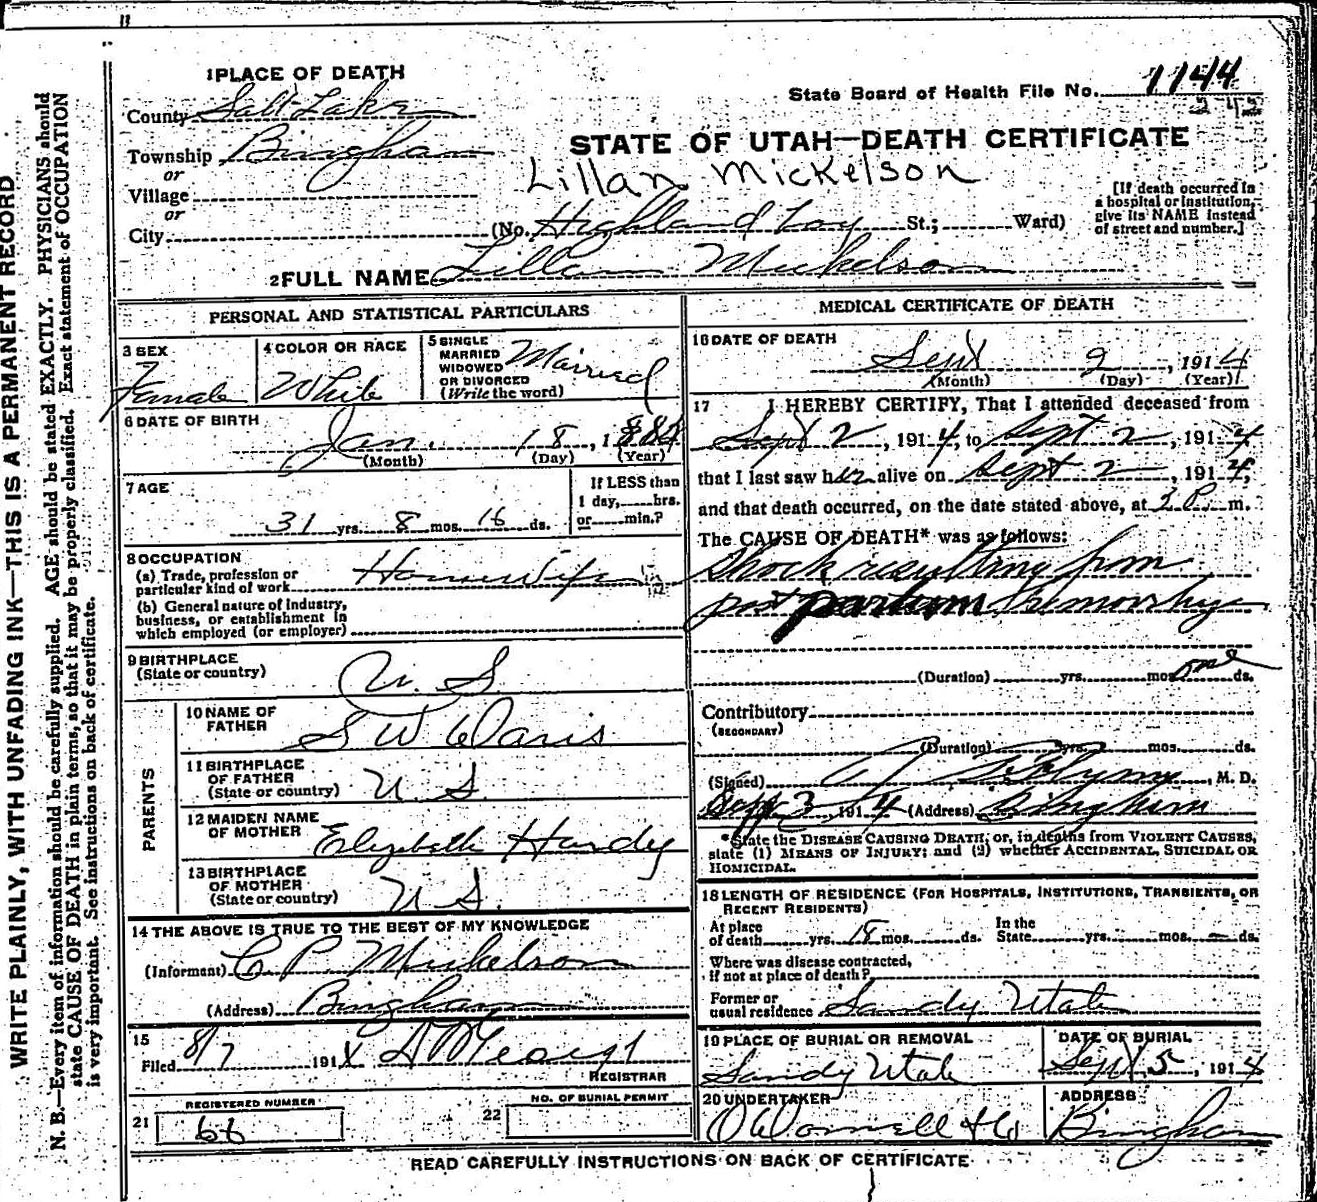 1 PLACE OF DEATH
County Salt Lake
Township Bingham
or
Village
or
City
State Board of Health File No. 1144
STATE OF UTAH—DEATH CERTIFICATE
Lillan Mickelson
(No. Highland Boy St.; Ward)
[If death occurred in a hospital or institution, give its NAME instead of street and number.]
2 FULL NAME Lillan Mickelson
PERSONAL AND STATISTICAL PARTICULARS
3 SEX Female
4 COLOR OR RACE White
5 SINGLE MARRIED WIDOWED OR DIVORCED (Write the word) Married
6 DATE OF BIRTH
Jan. 18, 1
(Month) (Day) (Year)
7 AGE
31 yrs. 8 mos. 16 ds.
If LESS than 1 day, hrs. or min.?
8 OCCUPATION
(a) Trade, profession or particular kind of work Housewife
(b) General nature of industry, business, or establishment in which employed (or employer)
9 BIRTHPLACE (State or country) U. S.
PARENTS
10 NAME OF FATHER S W Davis
11 BIRTHPLACE OF FATHER (State or country) U. S.
12 MAIDEN NAME OF MOTHER Elizabeth Hardy
13 BIRTHPLACE OF MOTHER (State or country) U S.
14 THE ABOVE IS TRUE TO THE BEST OF MY KNOWLEDGE
(Informent) C P. Mickelson
(Address) Bingham
15
Filed 8/7 191
REGISTRAR
21 REGISTERED NUMBER 66
22 NO. OF BURIAL PERMIT
MEDICAL CERTIFICATE OF DEATH
16 DATE OF DEATH
Sept 2, 1914
(Month) (Day) (Year)
17 I HEREBY CERTIFY, That I attended deceased from
Sept 2, 1914, to Sept 2, 1914
that I last saw her alive on Sept 2, 1914,
and that death occurred, on the date stated above, at 3 P. m.
The CAUSE OF DEATH* was as follows:
Shock resulting from
post partum hemorrhage
(Duration) yrs. mos. one ds.
Contributory
(SECONDARY)
(Duration) yrs. mos. ds.
(Signed) , M. D.
Sept 3 1914 (Address) Bingham
*State the DISEASE CAUSING DEATH, or, in deaths from VIOLENT CAUSES,
state (1) MEANS OF INJURY; and (2) whether ACCIDENTAL, SUICIDAL OR
HOMICIDAL.
18 LENGTH OF RESIDENCE (FOR HOSPITALS, INSTITUTIONS, TRANSIENTS, OR
RECENT RESIDENTS)
At place of death yrs. 18 mos. ds. In the State yrs. mos. ds.
Where was disease contracted,
if not at place of death?
Former or usual residence Sandy Utah
19 PLACE OF BURIAL OR REMOVAL Sandy Utah
DATE OF BURIAL Sept 5, 1914
20 UNDERTAKER O'Donnell & Co
ADDRESS Bingham
READ CAREFULLY INSTRUCTIONS ON BACK OF CERTIFICATE
WRITE PLAINLY, WITH UNFADING INK—THIS IS A PERMANENT RECORD
N. B.—Every item of information should be carefully supplied. AGE should be stated EXACTLY. PHYSICIANS should
state CAUSE OF DEATH in plain terms, so that it may be properly classified. Exact statement of OCCUPATION
is very important. See instructions on back of certificate.